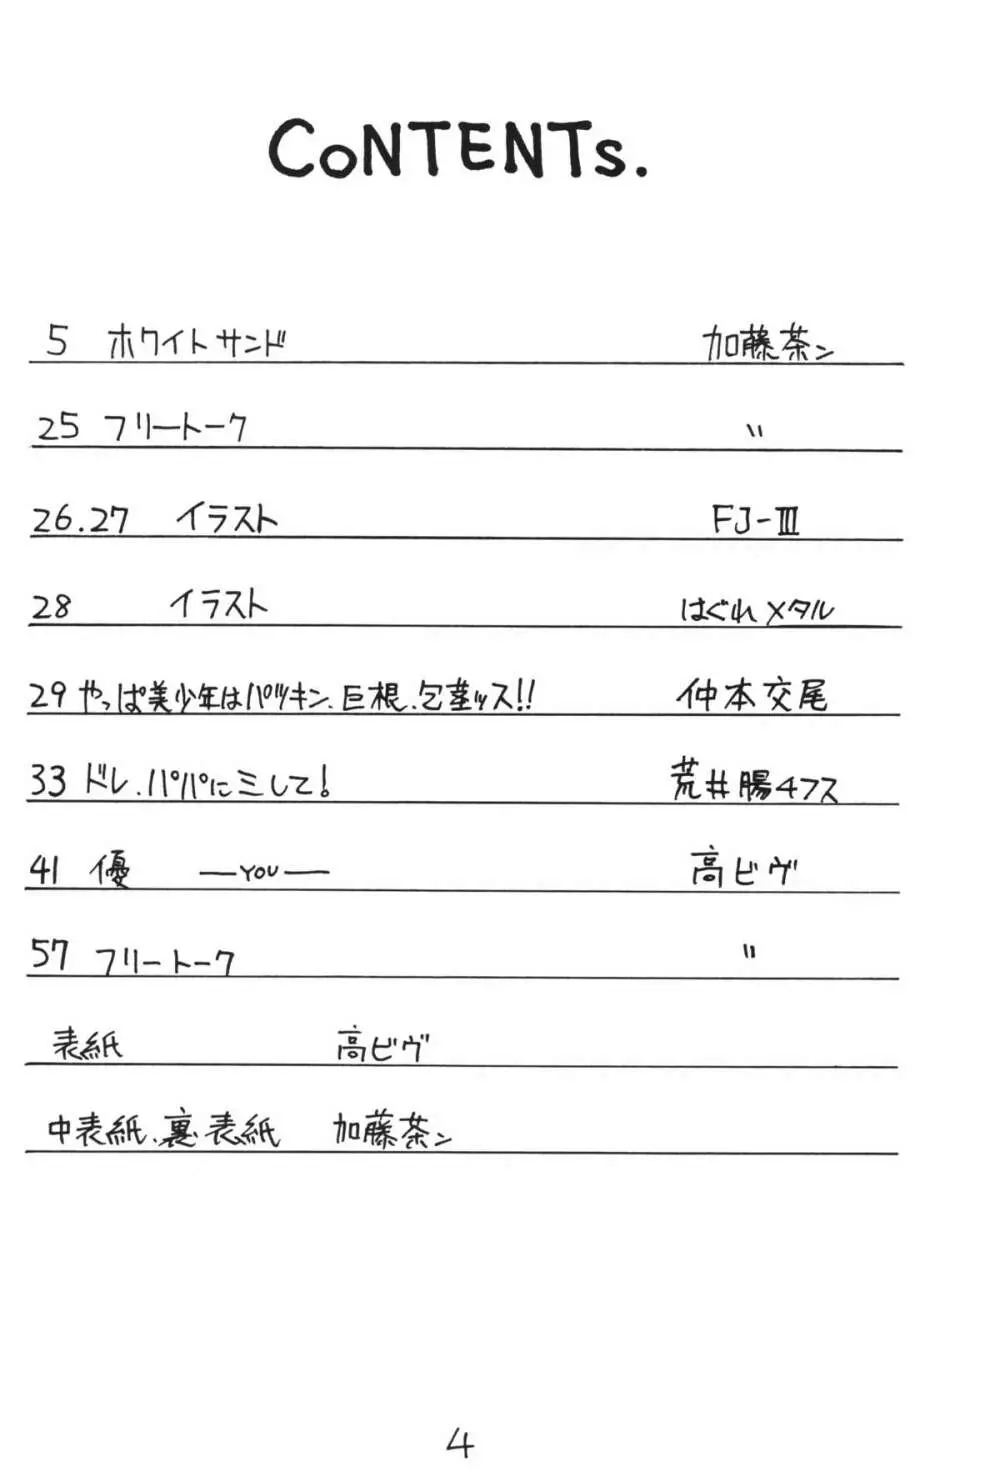 CoNTENTs.
5 ホワイトサンド 加藤茶ン
25 フリートーク 〃
26.27 イラスト FJ-Ⅲ
28 イラスト はぐれメタル
29 やっぱ美少年はパツキン、巨根、包茎ッス!!
仲本交尾
33 ドレ、パパにミして!
荒井腸4フス
41 優 ―YOU― 高ビヴ
57 フリートーク 〃
表紙 高ビヴ
中表紙、裏表紙 加藤茶ン
4